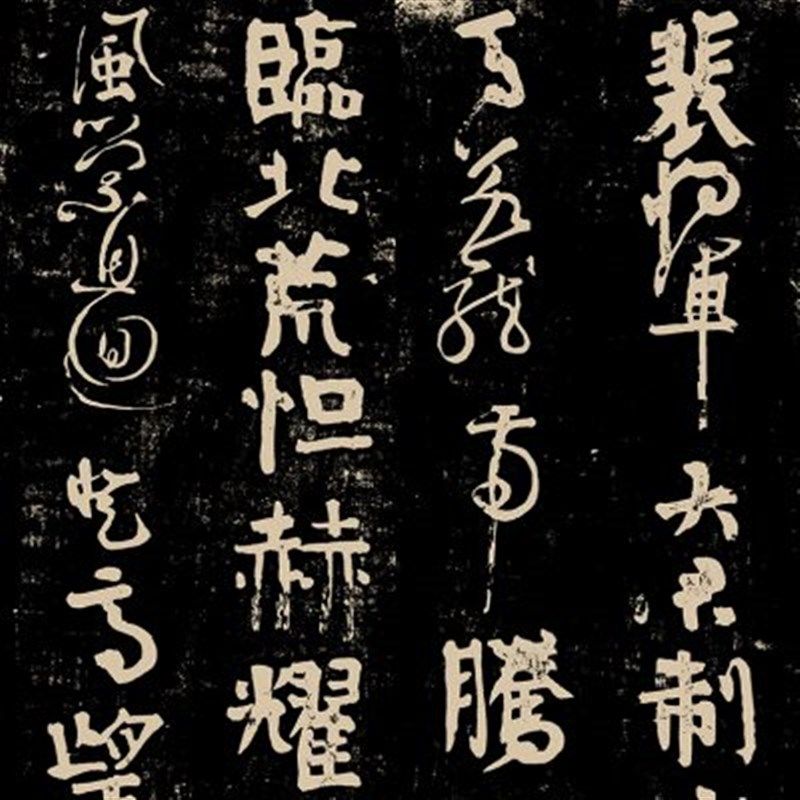 裴将軍大君制
馬若龍虎騰
臨北荒怛赫耀
風縈且迴登高望